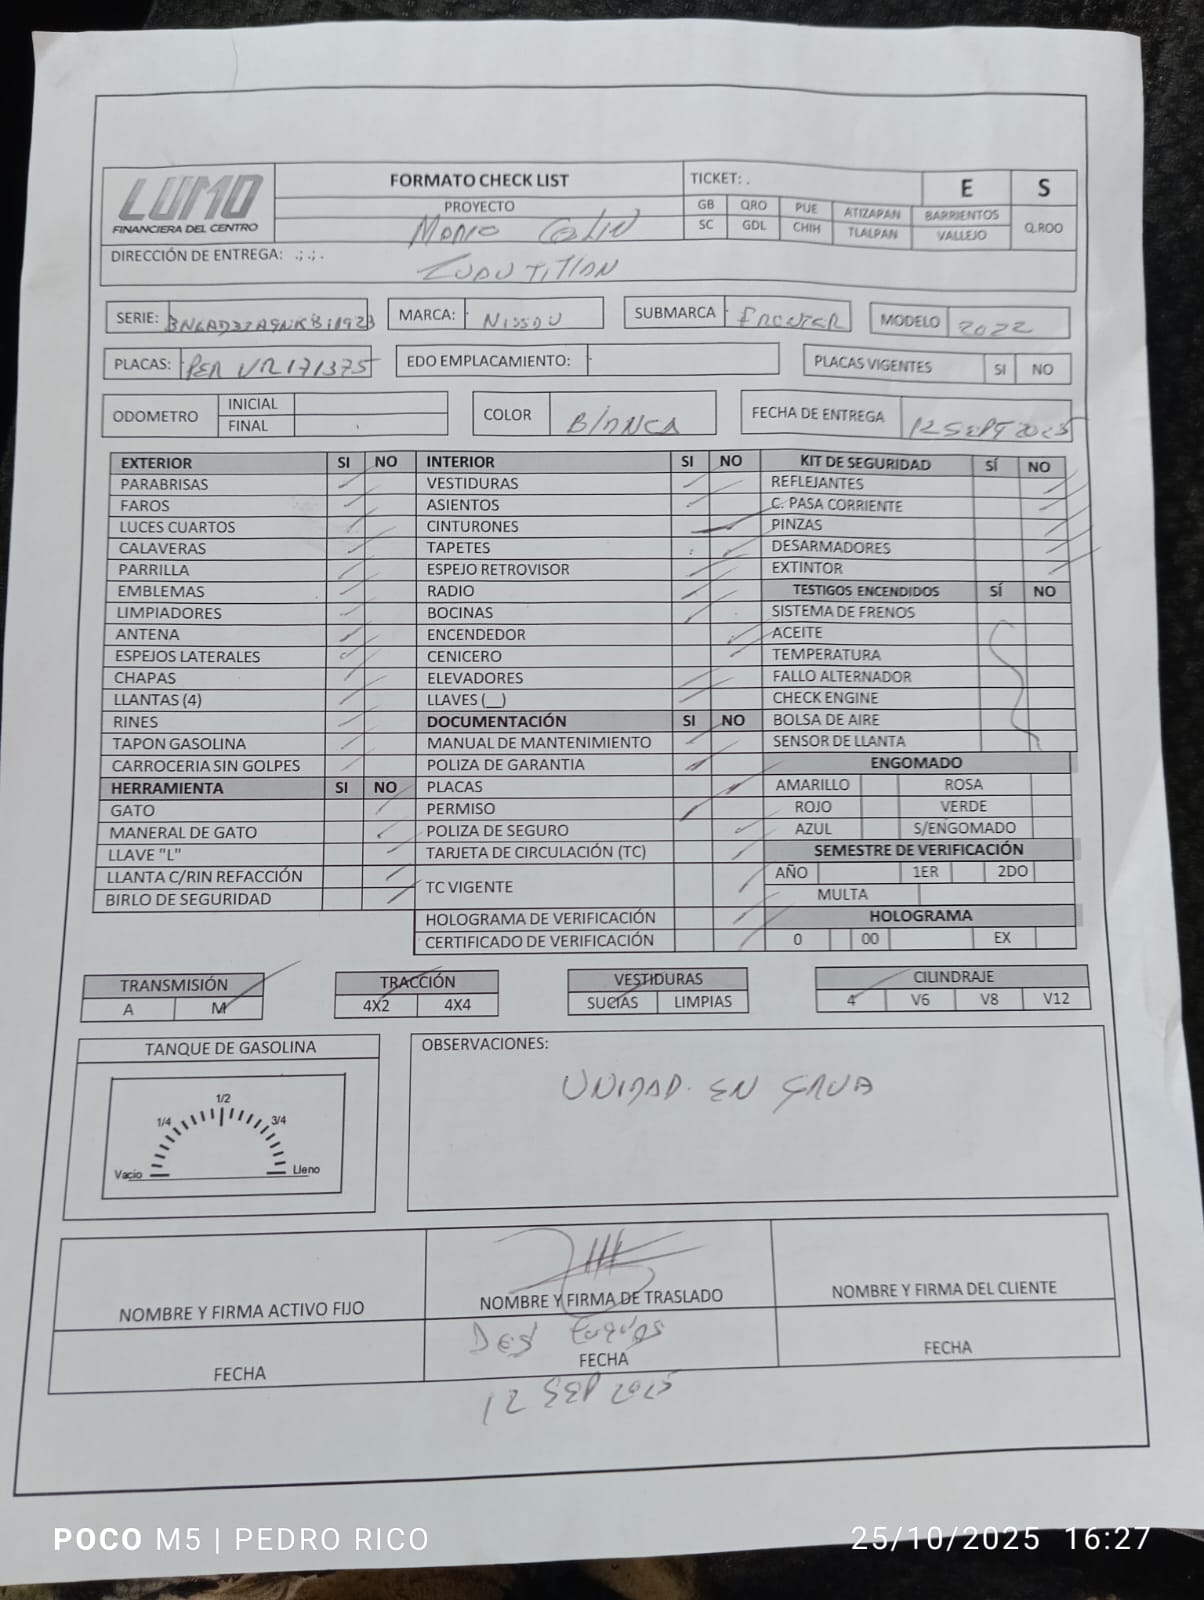 LUMO
FINANCIERA DEL CENTRO
FORMATO CHECK LIST
TICKET: .
E S
PROYECTO
GB QRO PUE ATIZAPAN BARRIENTOS
SC GDL CHIH TLALPAN VALLEJO Q.ROO
Mario Colin
DIRECCIÓN DE ENTREGA: .;.; .
SERIE:
MARCA: Nissan
SUBMARCA
MODELO 2022
PLACAS: PER VR171375
EDO EMPLACAMIENTO:
PLACAS VIGENTES SI NO
ODOMETRO INICIAL
FINAL
COLOR Blanca
FECHA DE ENTREGA 12 SEPT 2025
EXTERIOR SI NO INTERIOR SI NO KIT DE SEGURIDAD SÍ NO
PARABRISAS VESTIDURAS REFLEJANTES
FAROS ASIENTOS C. PASA CORRIENTE
LUCES CUARTOS CINTURONES PINZAS
CALAVERAS TAPETES DESARMADORES
PARRILLA ESPEJO RETROVISOR EXTINTOR
EMBLEMAS RADIO TESTIGOS ENCENDIDOS SÍ NO
LIMPIADORES BOCINAS SISTEMA DE FRENOS
ANTENA ENCENDEDOR ACEITE
ESPEJOS LATERALES CENICERO TEMPERATURA
CHAPAS ELEVADORES FALLO ALTERNADOR
LLANTAS (4) LLAVES (__) CHECK ENGINE
RINES DOCUMENTACIÓN SI NO BOLSA DE AIRE
TAPON GASOLINA MANUAL DE MANTENIMIENTO SENSOR DE LLANTA
CARROCERIA SIN GOLPES POLIZA DE GARANTIA ENGOMADO
HERRAMIENTA SI NO PLACAS AMARILLO ROSA
GATO PERMISO ROJO VERDE
MANERAL DE GATO POLIZA DE SEGURO AZUL S/ENGOMADO
LLAVE "L" TARJETA DE CIRCULACIÓN (TC) SEMESTRE DE VERIFICACIÓN
LLANTA C/RIN REFACCIÓN TC VIGENTE AÑO 1ER 2DO
BIRLO DE SEGURIDAD MULTA
HOLOGRAMA DE VERIFICACIÓN HOLOGRAMA
CERTIFICADO DE VERIFICACIÓN 0 00 EX
TRANSMISIÓN TRACCIÓN VESTIDURAS CILINDRAJE
A M 4X2 4X4 SUCIAS LIMPIAS 4 V6 V8 V12
TANQUE DE GASOLINA
1/2
1/4 3/4
Vacio Lleno
OBSERVACIONES:
UNIDAD EN
NOMBRE Y FIRMA ACTIVO FIJO NOMBRE Y FIRMA DE TRASLADO NOMBRE Y FIRMA DEL CLIENTE
FECHA FECHA FECHA
POCO M5 | PEDRO RICO
25/10/2025 16:27